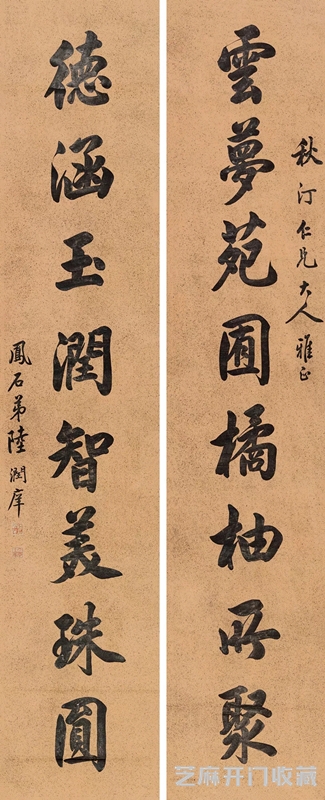 秋汀仁兄大人雅正
雲夢苑囿橘柚所聚
德涵玉潤智美珠圓
鳳石弟陸潤庠
芝麻开门收藏